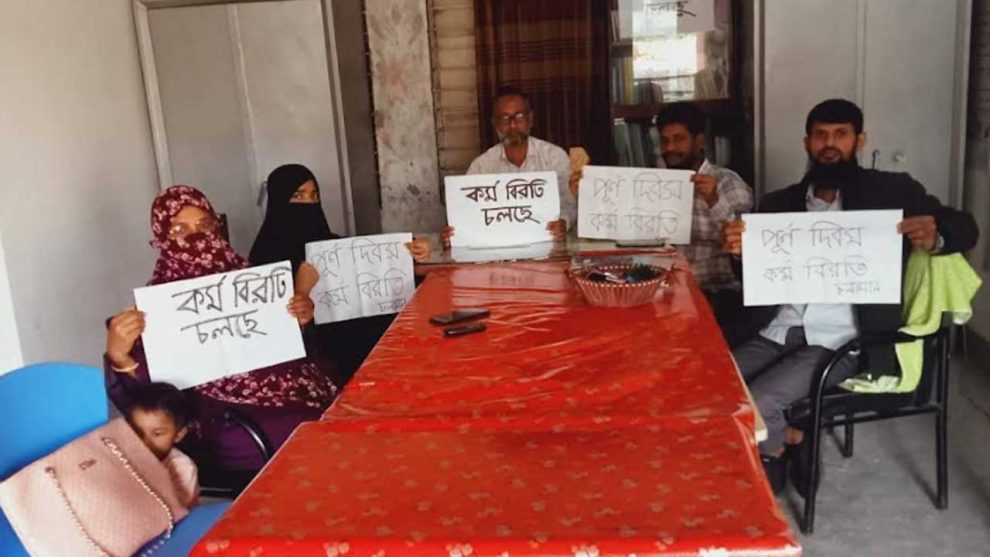 কর্ম বিরতি
চলছে
পূর্ণ দিবস
কর্ম বিরতি
কর্ম বিরতি
চলছে
পূর্ণ দিবস
কর্ম বিরতি
পূর্ণ দিবস
কর্ম বিরতি
চলমান
চলছে